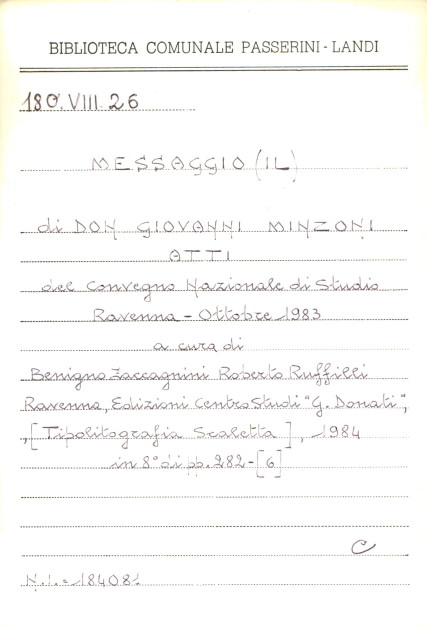 BIBLIOTECA COMUNALE PASSERINI-LANDI
180.VIII.26
MESSAGGIO (IL)
di DON GIOVANNI MINZONI
ATTI
del Convegno Nazionale di Studio
Ravenna - Ottobre 1983
a cura di
Benigno Zaccagnini Roberto Ruffilli
Ravenna, Edizioni Centro Studi "G. Donati",
,[Tipolitografia Scaletta], 1984
in 8° di pp. 282-[6]
C
N.I. = 184081